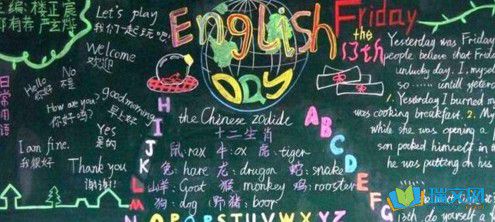 主编:楼正宸
Let's play
我们一起去玩吧!
Welcome
欢迎
日常用语
Hello
你好
No
不
How are you?
你好吗?
good morning
早上好
Yes
是的
I am fine.
我很好
Thank you
谢谢!
English
Day
the Chinese zodide
十二生肖
鼠:rax 牛:ox 虎:tiger
兔:hare 龙:drugon 蛇:snake
山羊:Goat 猴:monkey 鸡:rooster
狗:dog 野猪:boor
H
I
J
K
L
M
N
O
P
Q
R
S
T
A
B
C
D
E
F
G
Friday
the
13th
Yesterday was Friday
people believe that Frid
unlucky day. I, myself,
so ...... untill yesterd
1. Yesterday I burned m
was cooking breakfast. 2. My
while she was opening a
son pocked himself in t
he was putting on his
瑞元网